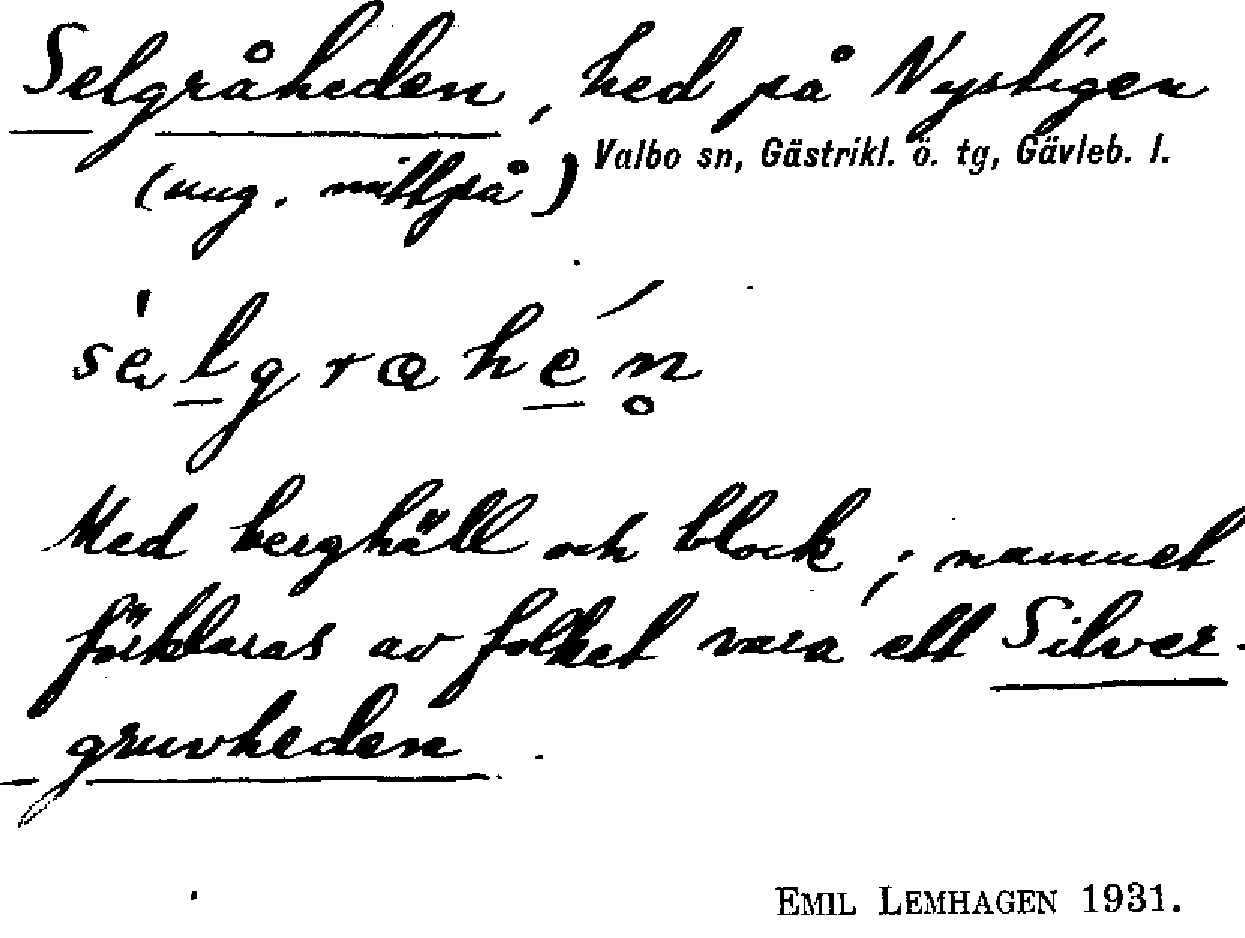 Selgråheden, hed på Nystigen
Valbo sn, Gästrikl. ö. tg, Gävleb. l.
(ung. mittpå)
sèlgrahén
Med berghäll och block; namnet
förklaras av folket vara ett Silver-
gruvheden.
EMIL LEMHAGEN 1931.